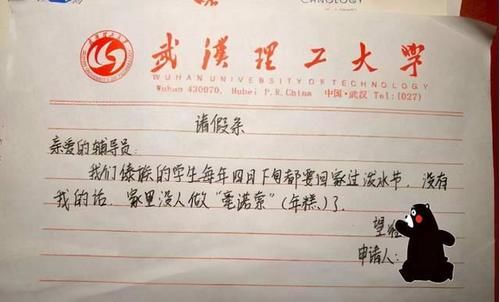 CHNOLOGY
武汉理工大学
WUHAN UNIVERSITY OF TECHNOLOGY
Wuhan 430070, Hubei P.R.China 中国·武汉 Tel:(027)
请假条
亲爱的辅导员
我们傣族的学生每年四月下旬都要回家过泼水节,没有
我的话,家里没人做“毫诺索”(年糕)了。
望
申请人: